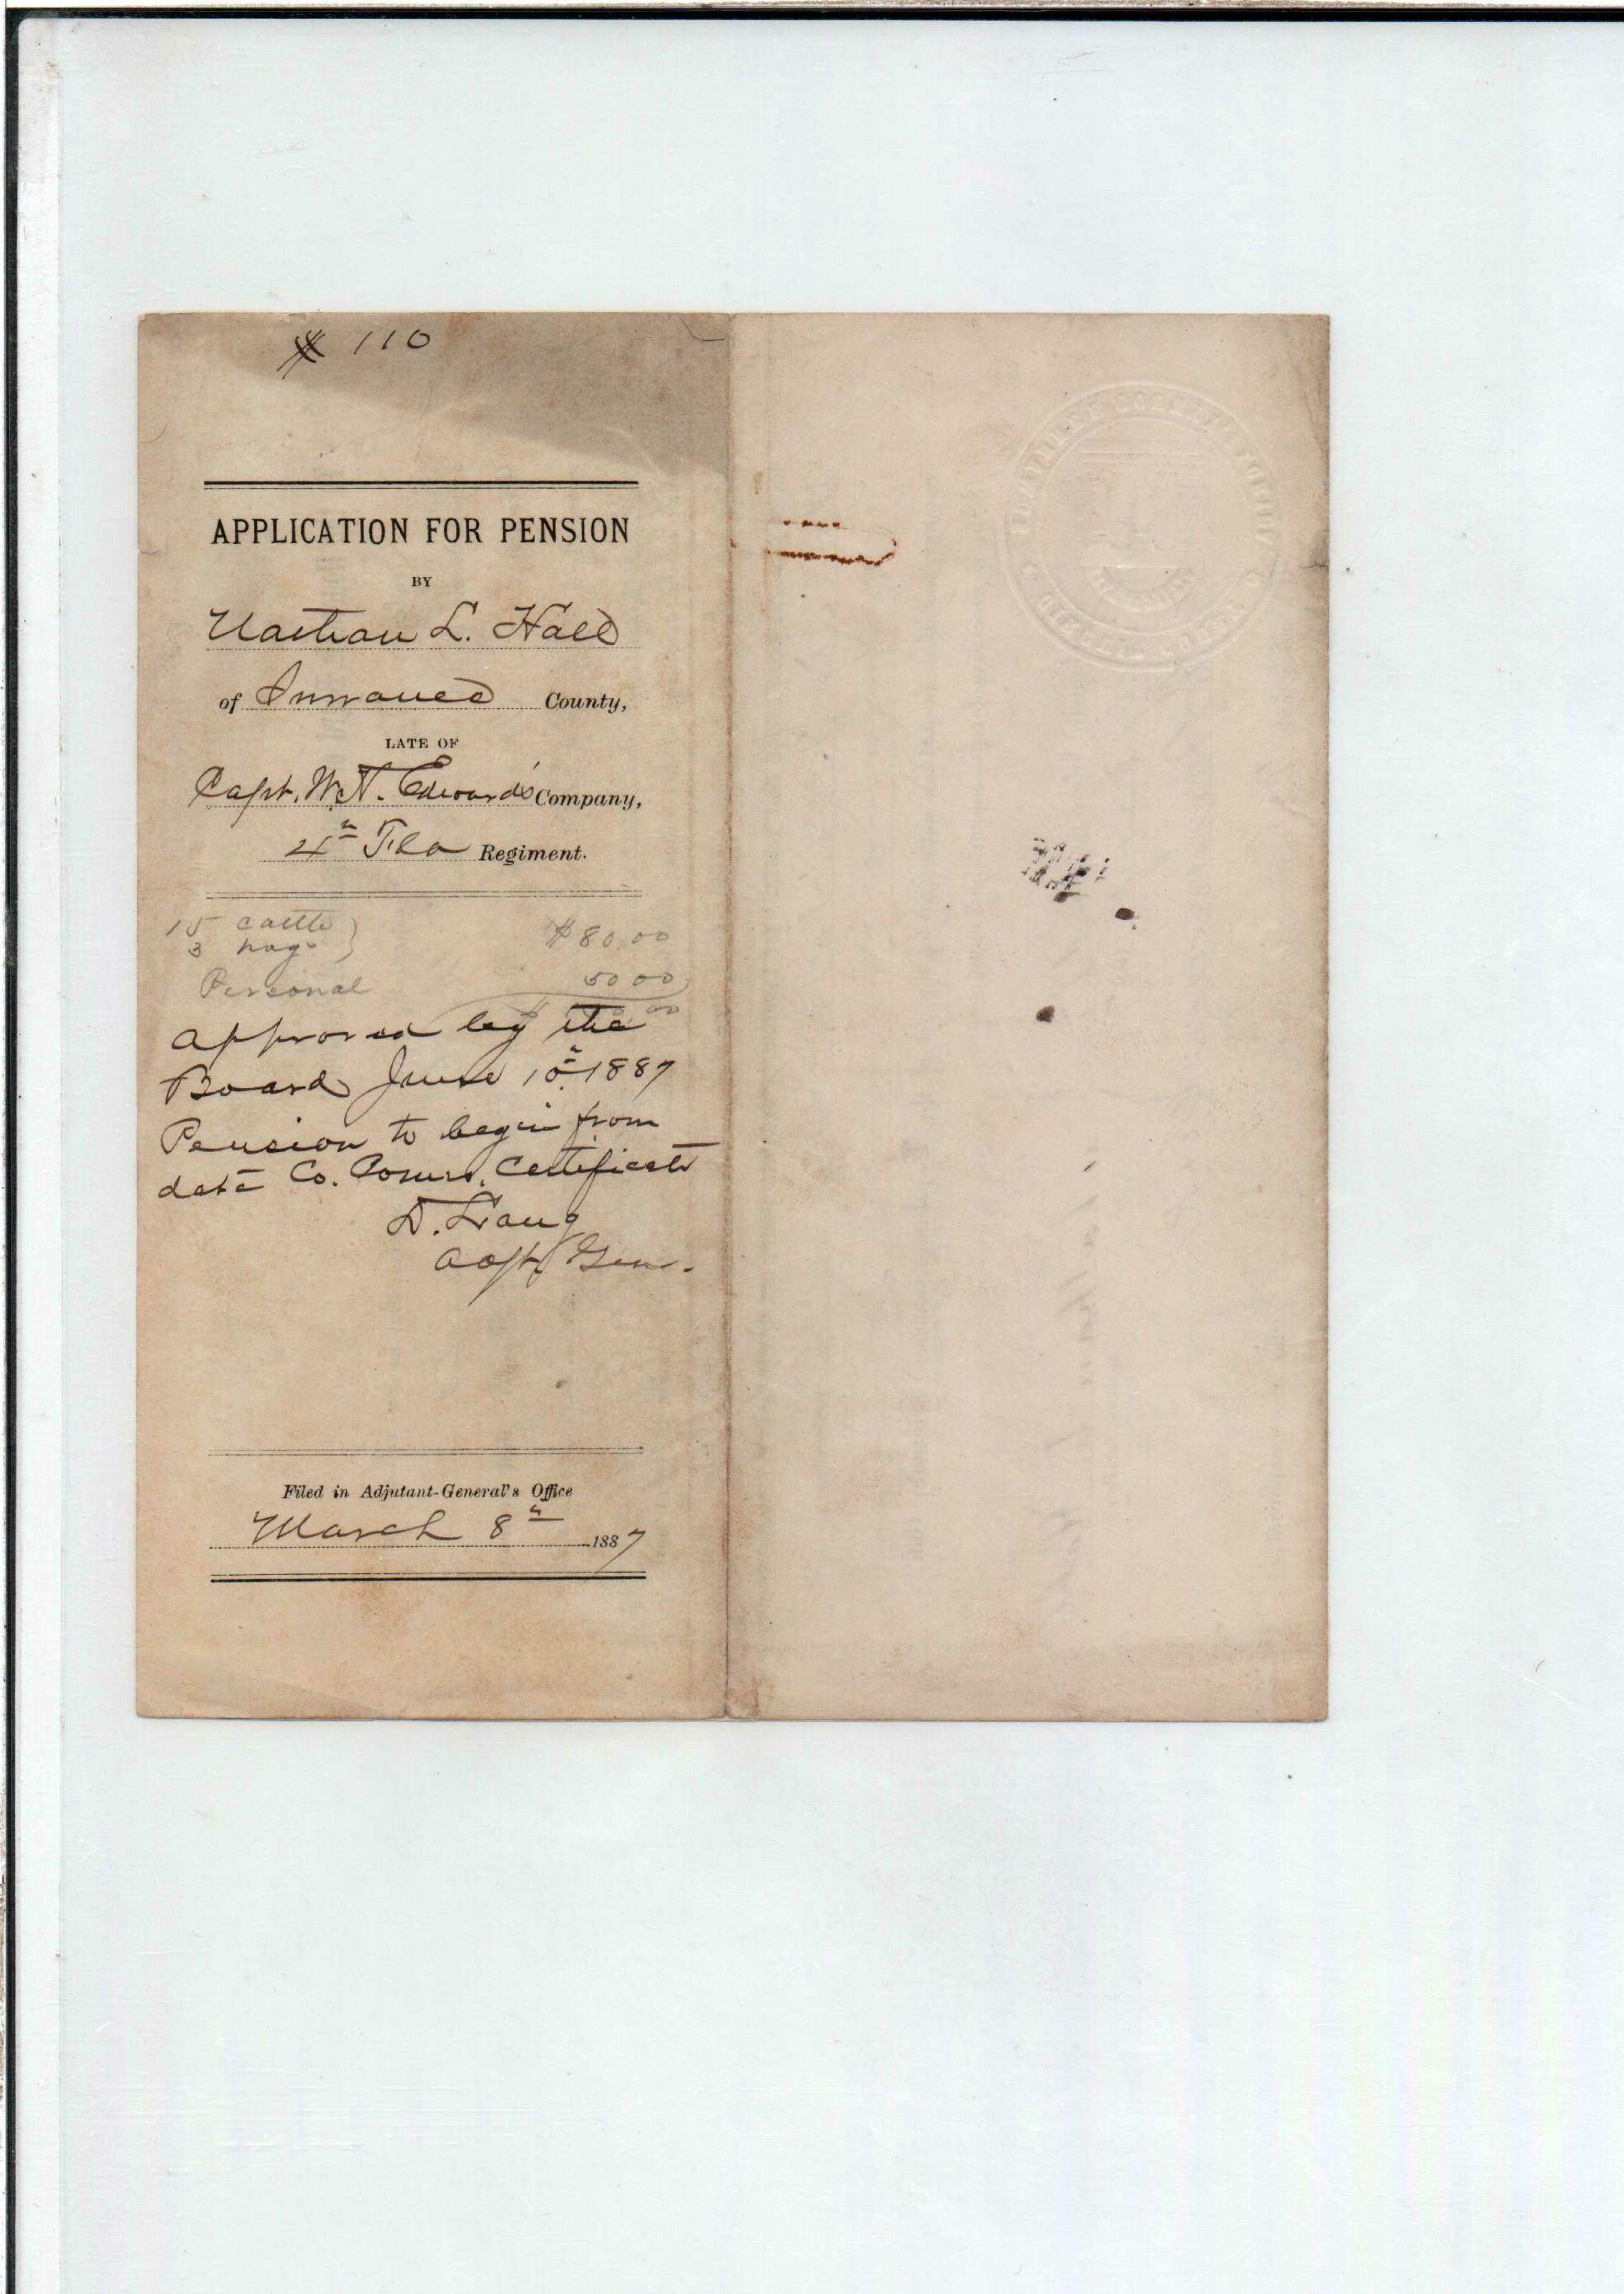 # 110
APPLICATION FOR PENSION
BY
Nathan L. Hall
of Suwanee County,
LATE OF
Capt. W. A. Edwards' Company,
4th Fla Regiment.
15 cattle
3 hogs $80.00
Personal 50 00
approved by the
Board June 10th 1887
Pension to begin from
date Co. Comrs. Certificate
D. Lang
Adjt. Gen.
Filed in Adjutant-General's Office
March 8th 1887